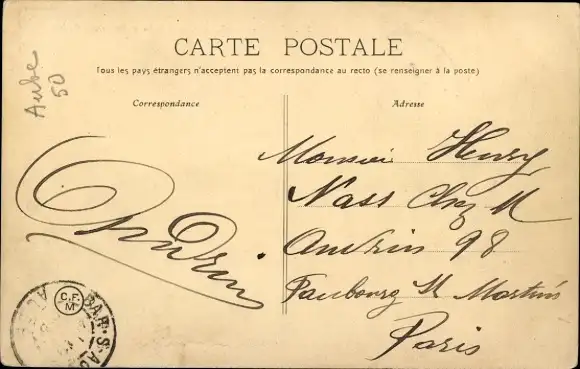 CARTE POSTALE
Tous les pays étrangers n'acceptent pas la correspondance au recto (se renseigner à la poste)
Aube
50
Correspondance
Adresse
Monsieur Henry
Nass Chez M
Oudrin 98
Faubourg St Martin
Paris
Oudrin
C.F.
M
BAR-S-AU